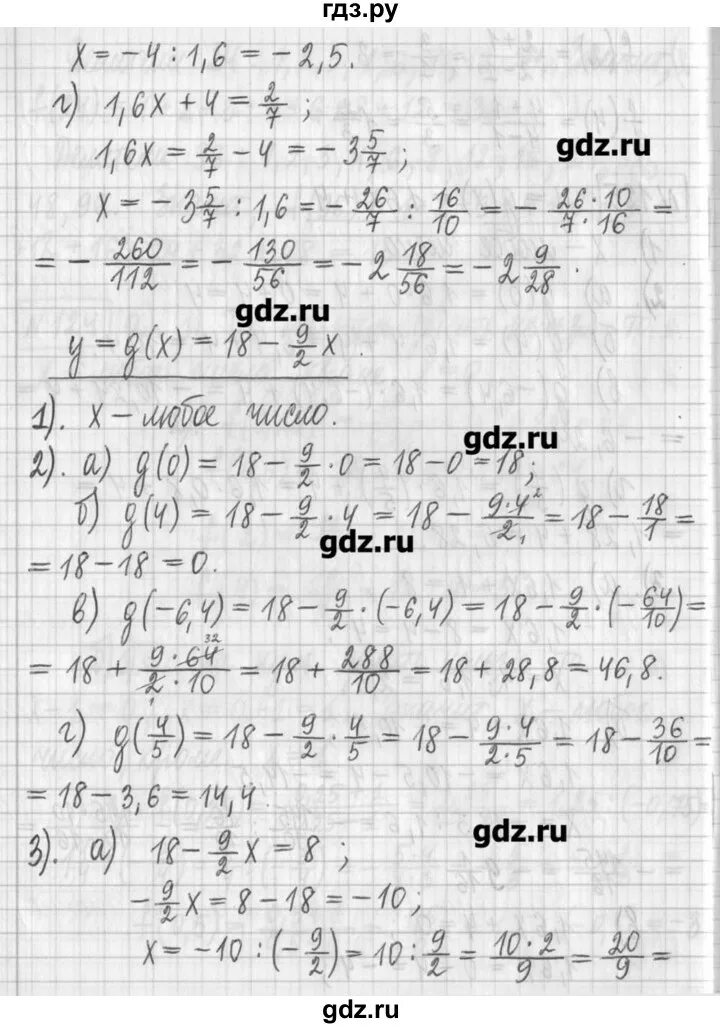 гдз.ру
x = -4 : 1,6 = -2,5.
г) 1,6x + 4 = 2/7 ;
1,6x = 2/7 - 4 = -3 5/7 ;
gdz.ru
x = -3 5/7 : 1,6 = -26/7 : 16/10 = - 26·10/7·16 =
= - 260/112 = - 130/56 = -2 18/56 = -2 9/28 .
gdz.ru
y = g(x) = 18 - 9/2 x .
1). x - любое число.
gdz.ru
2). а) g(0) = 18 - 9/2 · 0 = 18 - 0 = 18;
б) g(4) = 18 - 9/2 · 4 = 18 - 9·4²/2₁ = 18 - 18/1 =
gdz.ru
= 18 - 18 = 0.
в) g(-6,4) = 18 - 9/2 · (-6,4) = 18 - 9/2 · (-64/10) =
= 18 + 9·64³²/2₁·10 = 18 + 288/10 = 18 + 28,8 = 46,8.
г) g(4/5) = 18 - 9/2 · 4/5 = 18 - 9·4/2·5 = 18 - 36/10 =
= 18 - 3,6 = 14,4.
gdz.ru
3). а) 18 - 9/2 x = 8 ;
- 9/2 x = 8 - 18 = -10;
x = -10 : (-9/2) = 10 : 9/2 = 10·2/9 = 20/9 =
gdz.ru